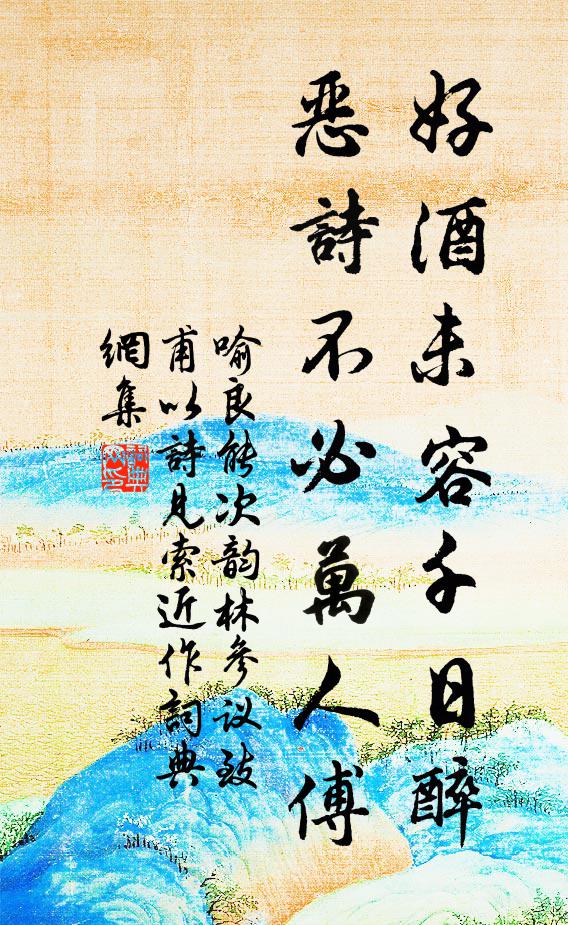 好酒未容千日醉
惡詩不必萬人傅
喻良能次韵林參议致
甫以詩見索近作詞典
網集